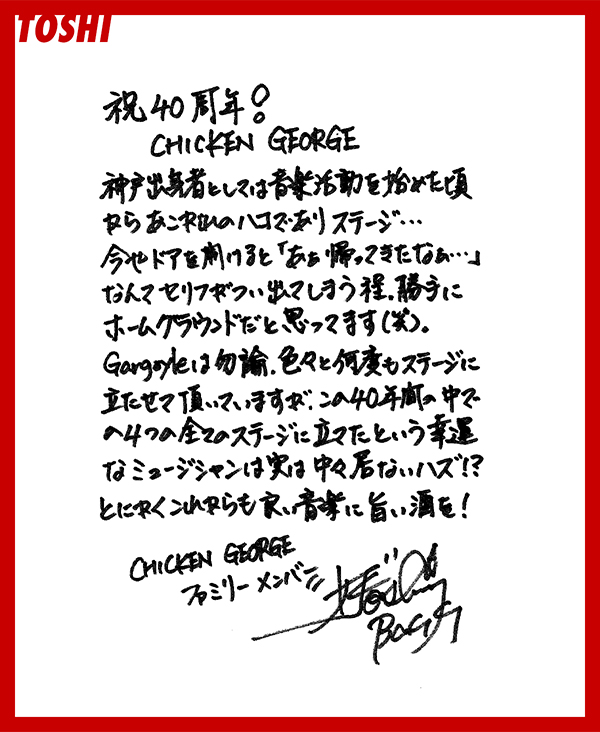 TOSHI
祝40周年!
CHICKEN GEORGE
神戸出身者としては音楽活動を始めた頃
からあこがれのハコでありステージ…
今やドアを開けると「あぁ帰ってきたなぁ…」
なんてセリフがつい出てしまう程、勝手に
ホームグラウンドだと思ってます(笑)。
Gargoyleは勿論、色々と何度もステージに
立たせて頂いていますが、この40年間の中で
の4つの全てのステージに立てたという幸運
なミュージシャンは実は中々居ないハズ!?
とにかくこれからも良い音楽に旨い酒を!
CHICKEN GEORGE
ファミリーメンバー